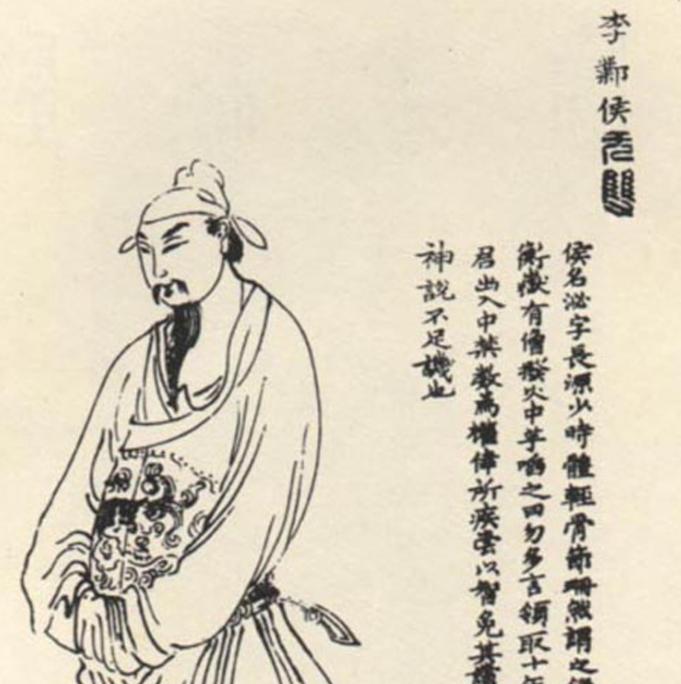 李鄴侯无雙
侯名泌字長源少時體輕骨節珊然謂之
衡嶽有僧撥火中芋啗之曰勿多言領取十年
君出入中禁數為權倖所疾以智免其
神說不足譏也